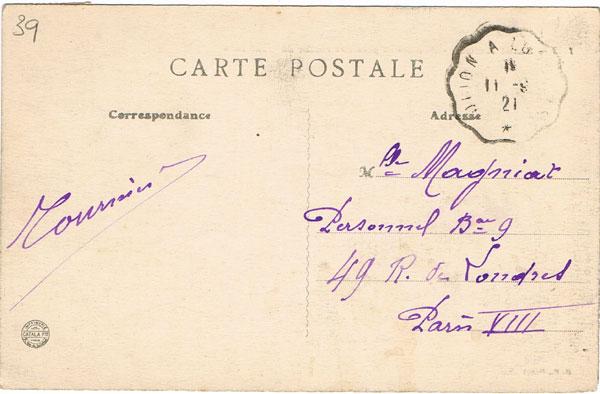 39
CARTE POSTALE
Correspondance
Adresse
11 - 9
21
Tournier
Mlle Magniat
Personnel Bau 9
49 R. de Londres
Paris VIII